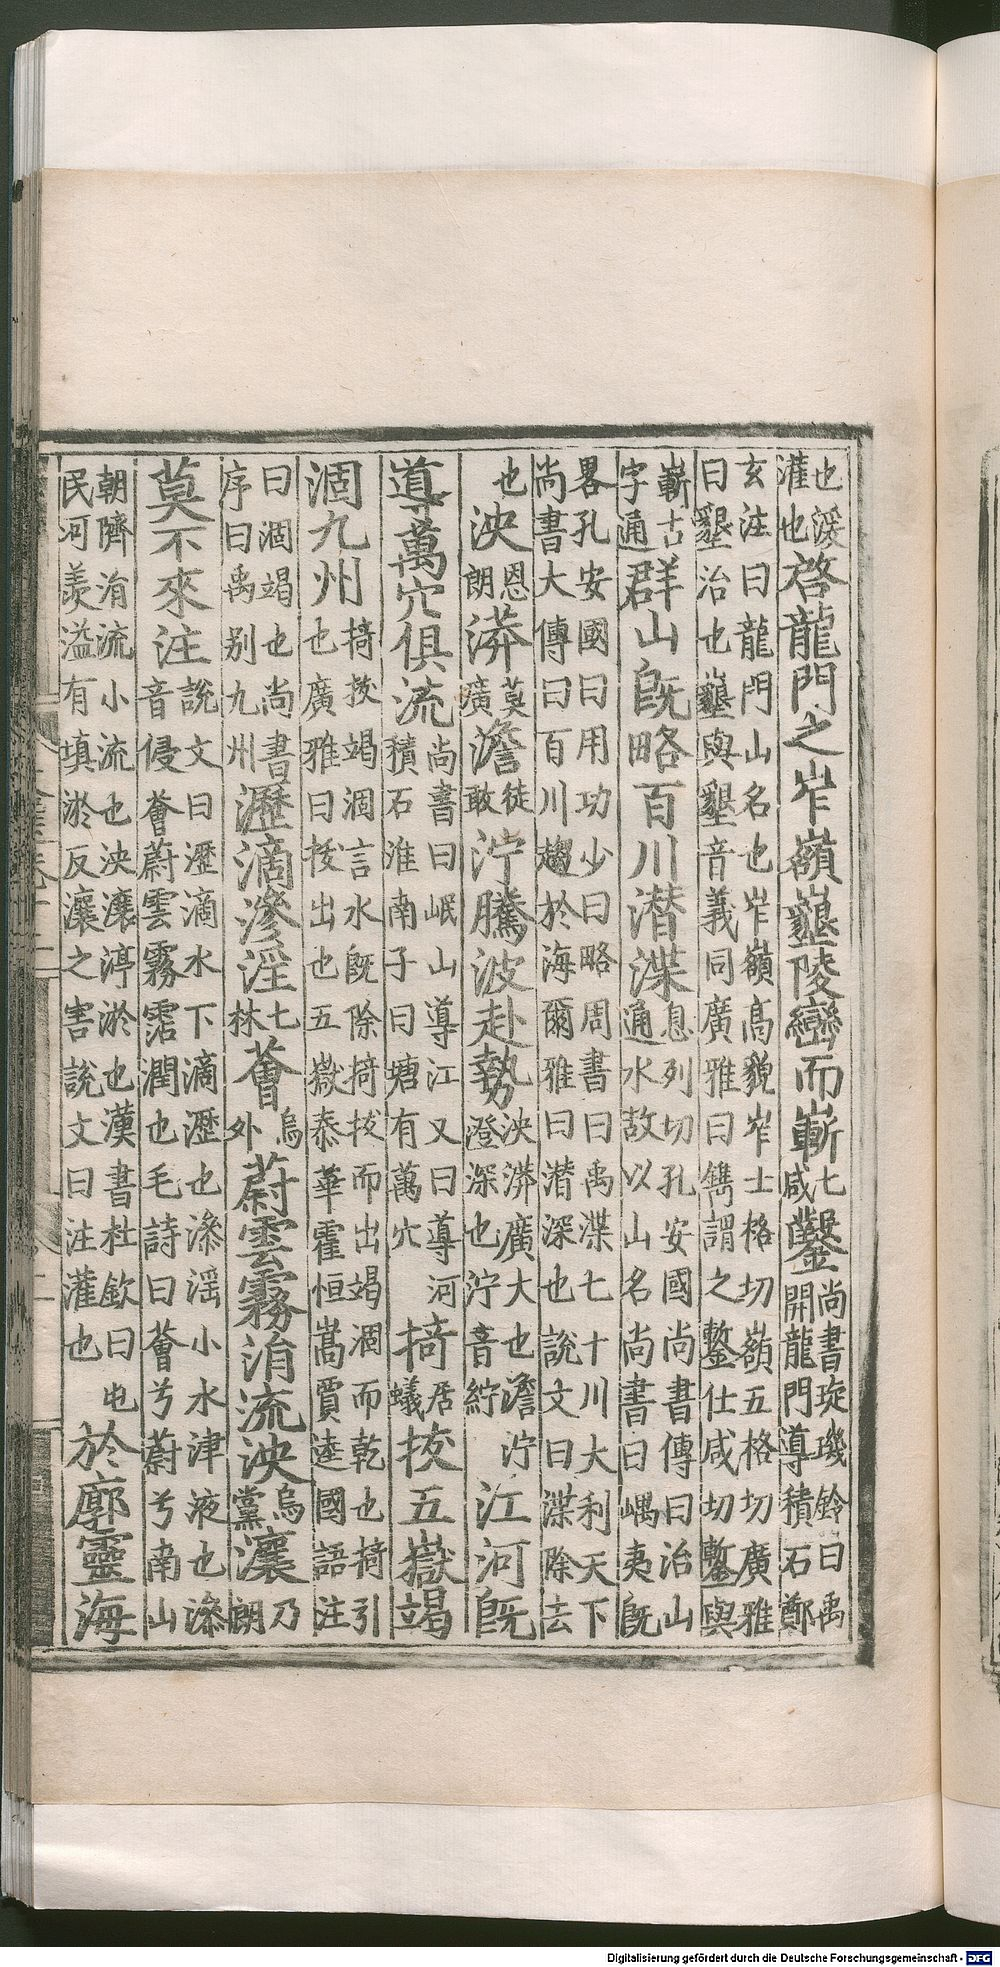 也湲灌也啓龍門之岝嶺墾陵巒而嶄七咸鑿尚書琁璣鈴曰禹開龍門導積石鄭
玄注曰龍門山名也岝嶺高貌岝士格切嶺五格切廣雅曰墾治也墾與墾音義同廣雅曰鐫謂之鏨仕咸切鏨與
嶄古字通群山旣略百川潛渫息列切孔安國尚書傳曰治山通水故以山名尚書曰嵎夷旣
畧孔安國曰用功少曰略周書曰禹渫七十川大利天下尚書大傳曰百川趨於海爾雅曰潛深也說文曰渫除去
也泱恩朗漭莫廣澹徒敢泞騰波赴勢泱漭廣大也澹泞澄深也泞音紵江河旣
導萬穴俱流尚書曰岷山導江又曰導河積石淮南子曰塘有萬穴掎居蟻拔五嶽竭
涸九州掎拔竭涸言水旣除掎拔而出竭涸而乾也掎引也廣雅曰拔出也五嶽泰華霍恒嵩賈逵國語注
曰涸竭也尚書序曰禹别九州瀝滴滲淫七林薈烏外蔚雲霧涓流泱烏黨瀼乃朗
莫不來注說文曰瀝滴水下滴瀝也滲淫小水津液也滲音侵薈蔚雲霧霑潤也毛詩曰薈兮蔚兮南山
朝隮涓流小流也泱瀼渟淤也漢書杜欽曰屯民河羨溢有填淤反瀼之害說文曰注灌也於廓靈海
Digitalisierung gefördert durch die Deutsche Forschungsgemeinschaft - DFG